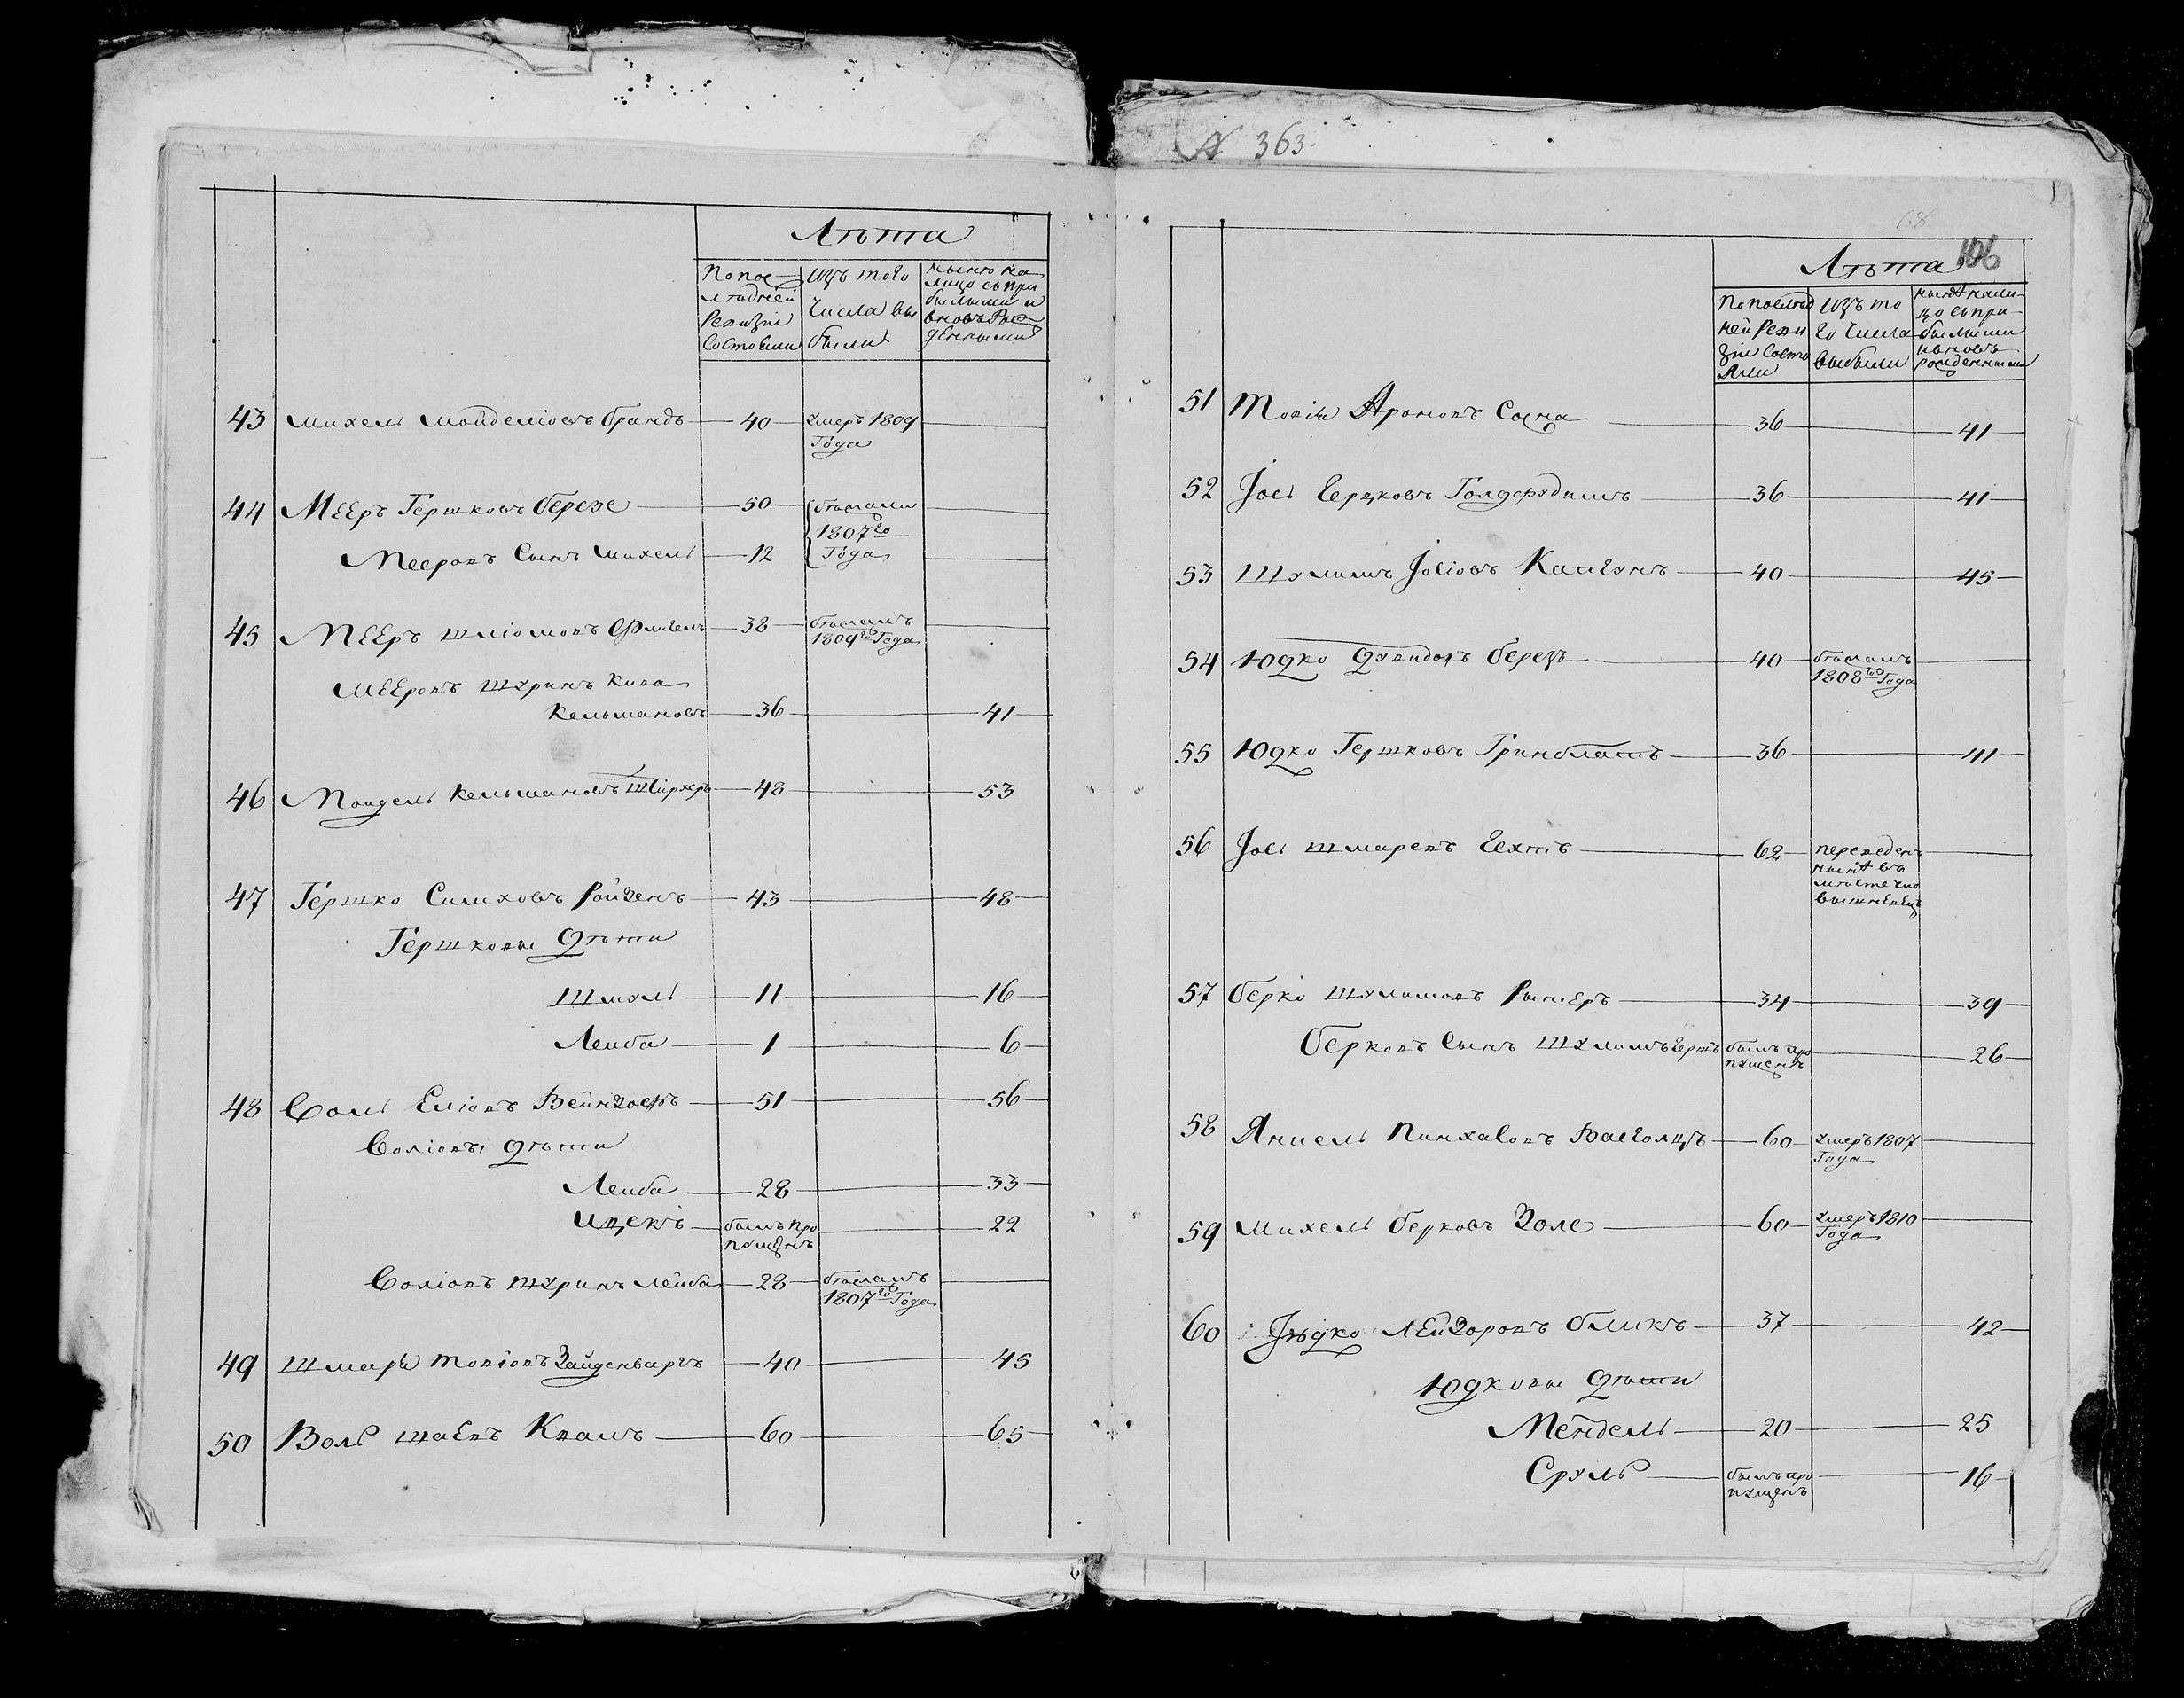 Лѣта
По пос-
лѣдней
Ревизіи
состояли
изъ того
числа вы
были
нынѣ на
лицо съ при
былыми и
вновь Рож
денными
43 Михель Мойделіовъ брандъ 40 умеръ 1809
Года
44 Мееръ Гершковъ березе 50 бѣжали
1807го
Мееровъ сынъ Михель 12 Года
45 Мееръ Шліомовъ Флигель 38 бѣжалъ
1809го Года
Мееровъ шуринъ Кива
Кельмановъ 36 41
46 Мондель Кельмановъ 48 53
47 Гершко Силиховъ Ройзенъ 43 48
Гершковы дѣти
Шмуль 11 16
Лейба 1 6
48 Соль Еліовъ Вейнзофъ 51 56
Соліовы дѣти
Лейба 28 33
Ицекъ былъ про 22
пущенъ
Соліовъ шуринъ Лейба 28 бѣжалъ
1807го Года
49 Шмарія Товіовъ Зайденваргъ 40 45
50 Воль Шаевъ Квалъ 60 65
N 363.
68
106
Лѣта
По послѣд
ней Реви
зіи состо
яли
изъ то
го числа
выбыли
нынѣ нали-
цо съ при-
былыми
и вновь
рожденными
51 Товія Ароновъ Сосна 36 41
52 Jось Герцковъ Голдерудимъ 36 41
53 Шулимъ Jосіовъ Капгунъ 40 45
54 Юдко Дувидовъ березъ 40 бѣжалъ
1808го Года
55 Юдко Гершковъ Гринблатъ 36 41
56 Jось Шмаревъ Гехтъ 62 переведенъ
нынѣ въ
мѣстечко
вышневецъ
57 Берко Шулимовъ Рытеръ 34 39
Берковъ сынъ Шулимъ Герть былъ про 26
пущенъ
58 Янкель Пинхасовъ Васголцъ 60 умеръ 1807
Года
59 Михель берковъ Золе 60 умеръ 1810
Года
60 Judко Лейзоровъ бликъ 37 42
Юдковы дѣти
Мендель 20 25
Сруль былъ про 16
пущенъ